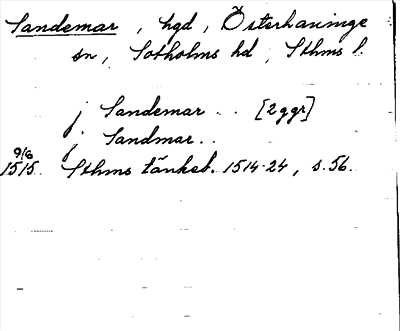 Sandemar, hgd, Österhaninge
sn, Sotholms hd, Sthms l.
j Sandemar . . [2 ggr]
j Sandmar . .
9/6
1515. Sthms tänkeb. 1514-24, s. 56.